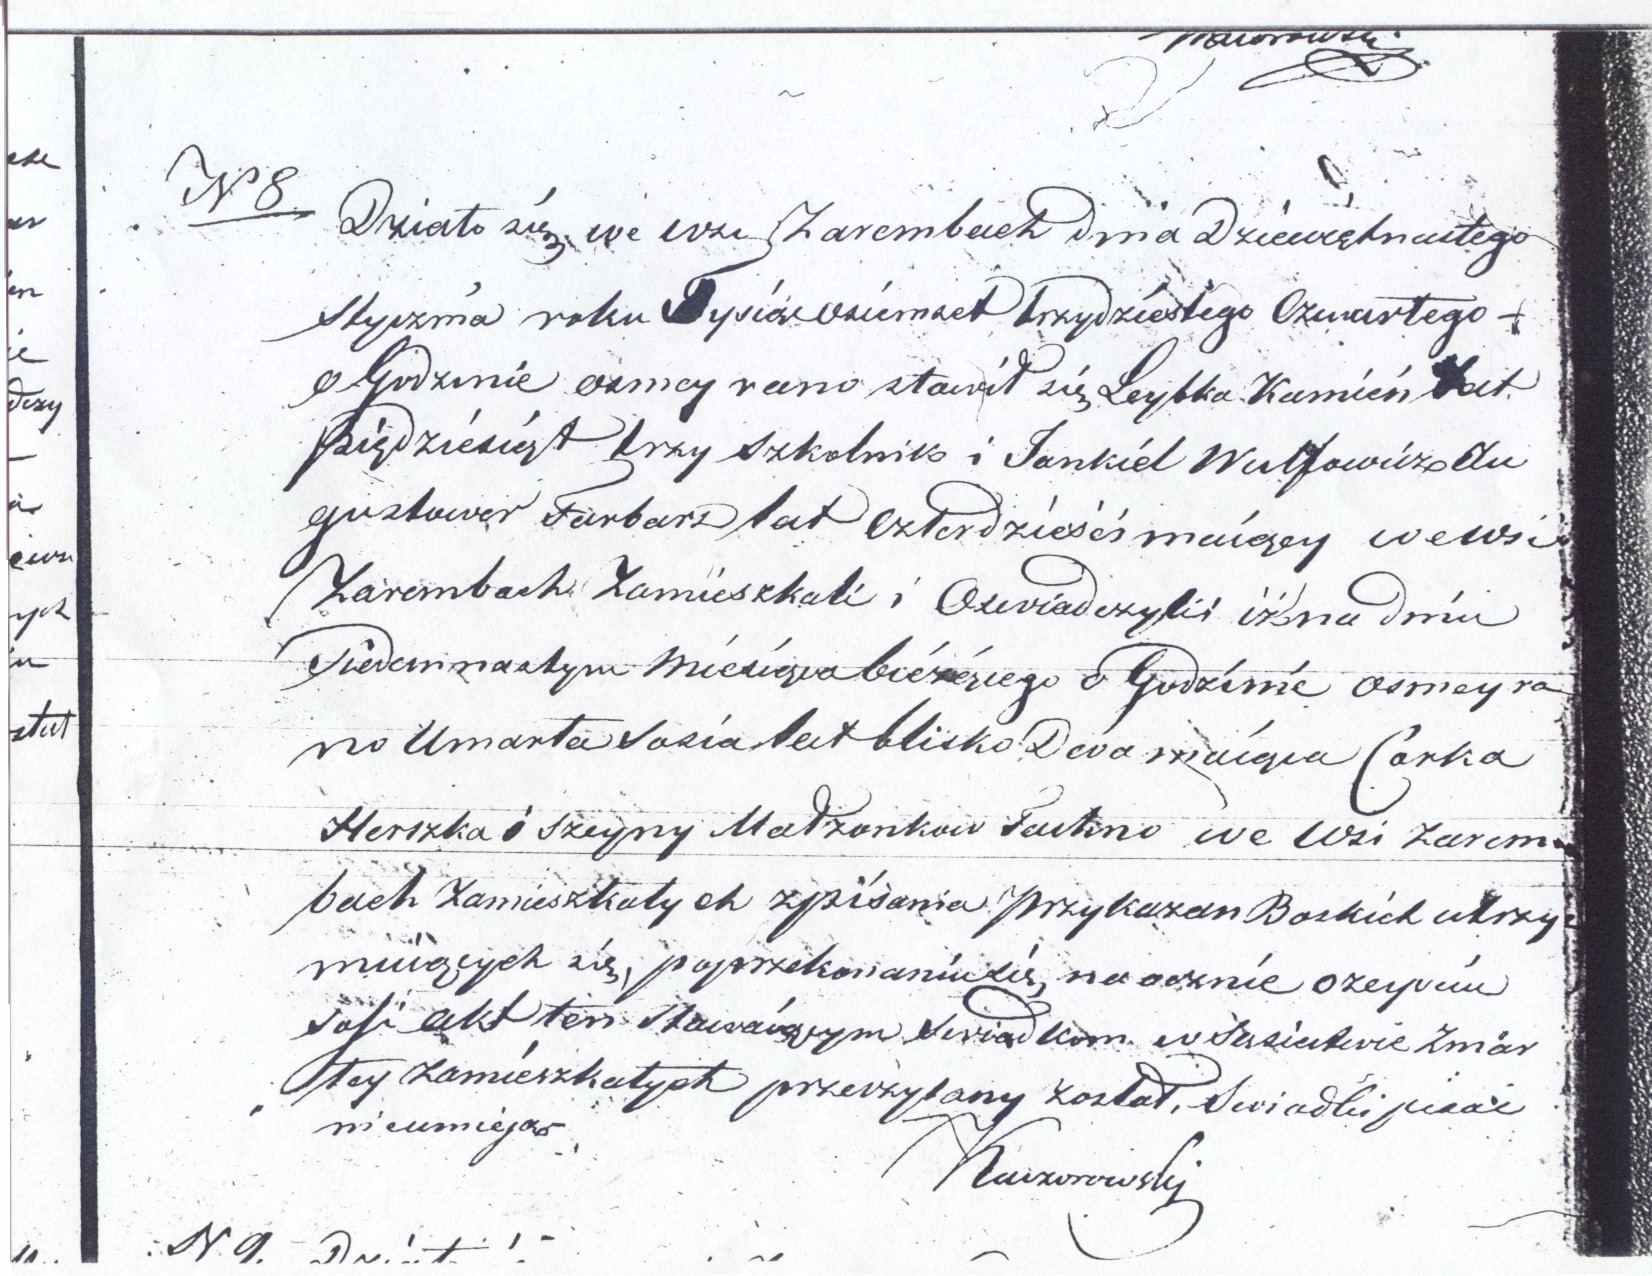 N 8.
Działo się we wsi Zarembach dnia Dziewiętnastego
Stycznia roku Tysiąc osiemset trzydziestego Czwartego
o Godzinie osmey rano stawił się Leybka Kamień lat
piędziesiąt trzy szkolnik i Jankiel Wulfowicz Au
gustower Farbarz lat czterdzieści maiący we wsi
Zarembach Zamieszkali i Oswiadczyli iż na dniu
Siedemnastym Miesiąca bieżącego o Godzinie osmey ra
no Umarła Sosia lat blisko Dwa maiąca Córka
Herszka i Szeyny Małżonkow we wsi Zarem
bach Zamieszkałych z pisania Przykazan Boskich utrzy
muiących się, po przekonaniu się na ocznie o zeyściu
Sosi akt ten Stawaiącym Swiadkom w Sąsiedztwie Zmar
łey zamieszkałych przeczytany został, Swiadki pisać
nieumieją
Kaczorowski
N 9. Działo